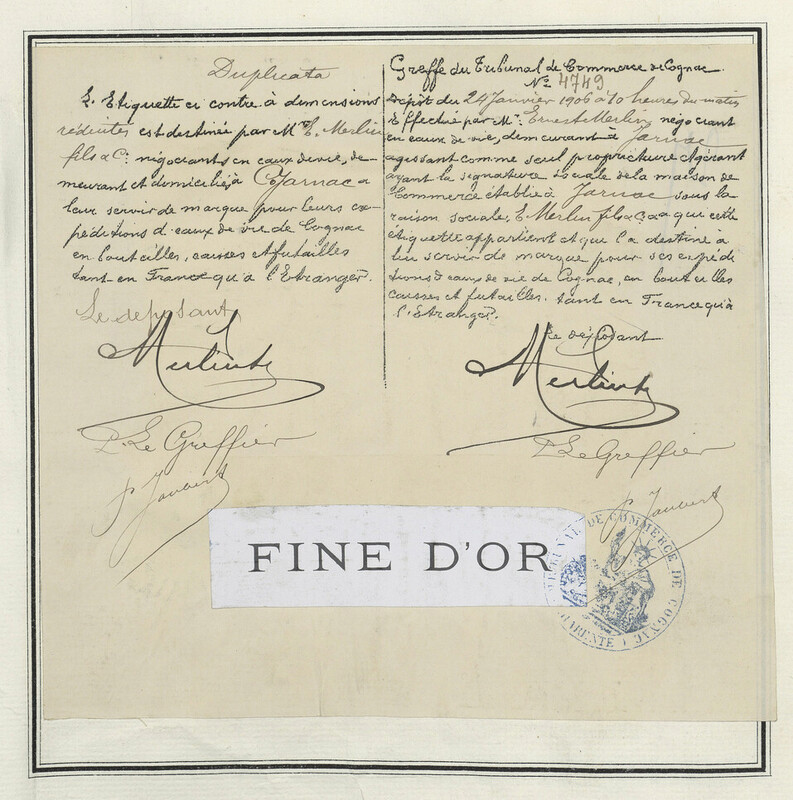 Duplicata
L'Etiquette ci contre à dimensions
réduites est destinée par Mr E. Merlin
fils & Cie négociants en eaux de vie, de-
meurant et domiciliés à Jarnac a
leur servir de marque pour leurs ex-
péditions d'eaux de vie de Cognac
en bouteilles, caisses et futailles
tant en France qu'à l'Etranger.
Le deposant
P. Le Greffier
Greffe du Tribunal de Commerce de Cognac
No 4749
Dépôt du 24 Janvier 1906 à 10 heures du matin
Effectué par Mr Ernest Merlin négociant
en eaux de vie, demeurant à Jarnac
agissant comme seul propriétaire & gérant
ayant la signature sociale de la maison de
Commerce établie à Jarnac sous la
raison sociale, E Merlin fils & Cie a que cette
étiquette appartient et que l'a destiné à
lui servir de marque pour ses expédi
tions d'eaux de vie de Cognac, en bouteilles
caisses et futailles. tant en France qu'à
l'Etranger.
Le déposant
P. Le Greffier
FINE D'OR
TRIBUNAL DE COMMERCE DE COGNAC
CHARENTE